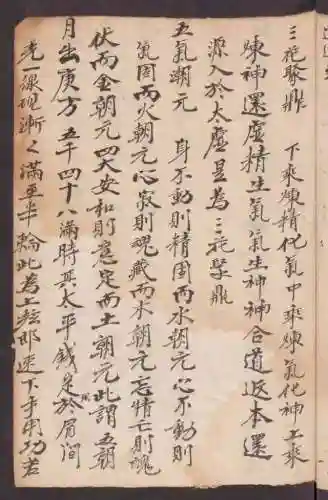 三花聚鼎　下乘煉精化氣中乘煉氣化神上乘
煉神還虛精生氣氣生神神合道返本還
源入於太虛是為三花聚鼎
五氣潮元　身不動則精固而水朝元心不動則
氣固而火朝元心寂則魂藏而木朝元忘情亡則魄
伏而金朝元四大安和則意定而土朝元此謂五朝
月出庚方五千四十八滿時其太平錢足於眉間
光一線現漸々滿至半輪此為上弦即速下手用功若